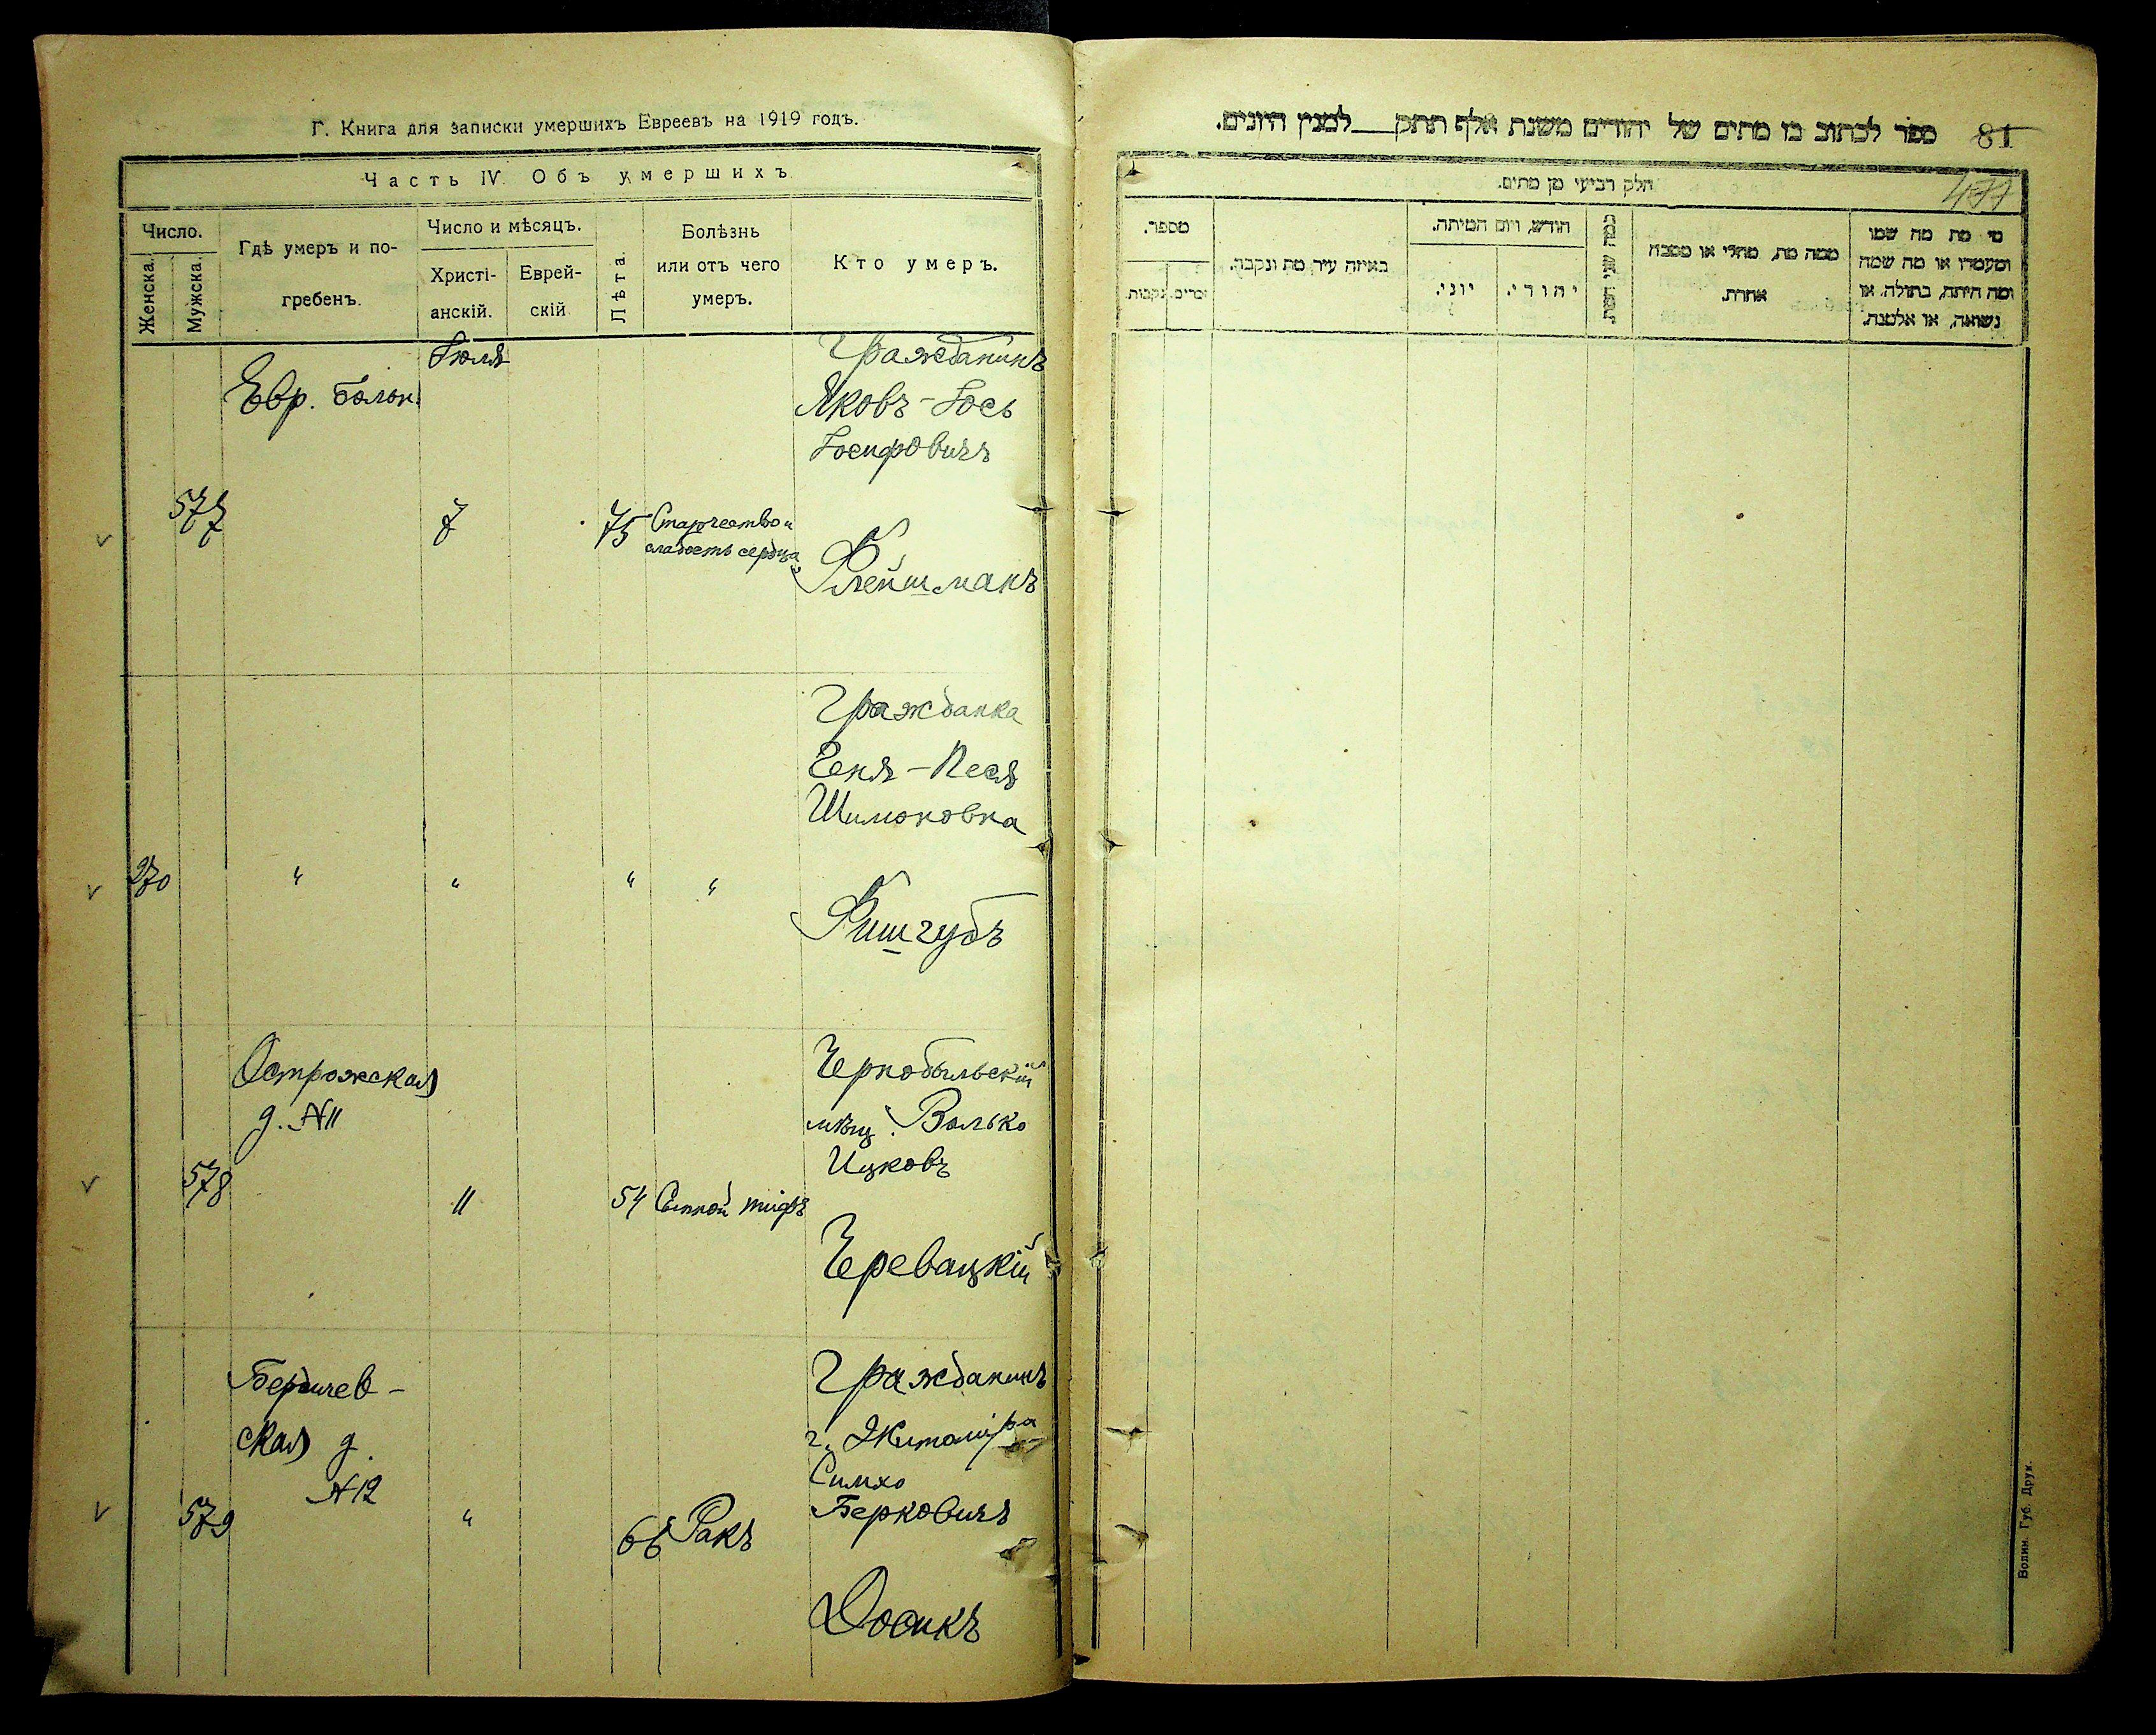 Г. Книга для записки умершихъ Евреевъ на 1919 годъ.
Часть IV. Объ умершихъ
Число.
Женска.
Мужска.
Гдѣ умеръ и по-
гребенъ.
Число и мѣсяцъ.
Христі-
анскій.
Еврей-
скій
Лѣта.
Болѣзнь
или отъ чего
умеръ.
Кто умеръ.
Іюля
Гражданинъ
Евр. больн.
Яковъ-Іось
Іосифовичъ
577
7
75
Старчество и
слабость сердца
Флейшманъ
Гражданка
Геня-Песя
Шимоновна
270
"
"
"
"
Фишгубъ
Острожская
д. N11
Чернобыльскій
мѣщ. Волько
Ицковъ
578
11
54
Сыпной тифъ
Черевацкій
Бердичев-
ская д.
N12
Гражданинъ
г. Житоміра
Симхо
Берковичъ
579
"
66
Ракъ
Досикъ
ספר לכתוב בו מתים של יהודים משנת אלף תתק___למנין היונים.
81
477
חלק רביעי מן מתים.
מספר.
זכרים.
נקבות.
באיזה עיר מת ונקבר.
חודש, ויום המיתה.
יוני.
יהודי.
ממה מת, מחלי או מסבה
אחרת.
מי מת מה שמו
ומעמדו או מה שמה
ומה היתה, בתולה, או
נשואה, או אלמנה.
Волин. Губ. Друк.